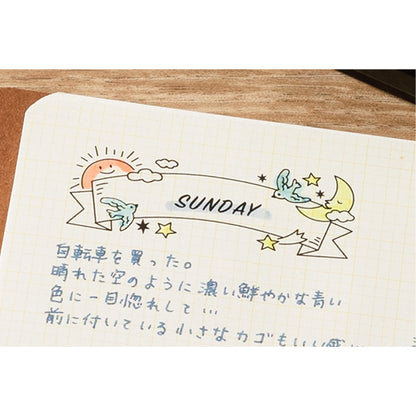 SUNDAY
自転車を買った。
晴れた空のように濃い鮮やかな青い
色に一目惚れして…
前に付いている小さなカゴもいい感